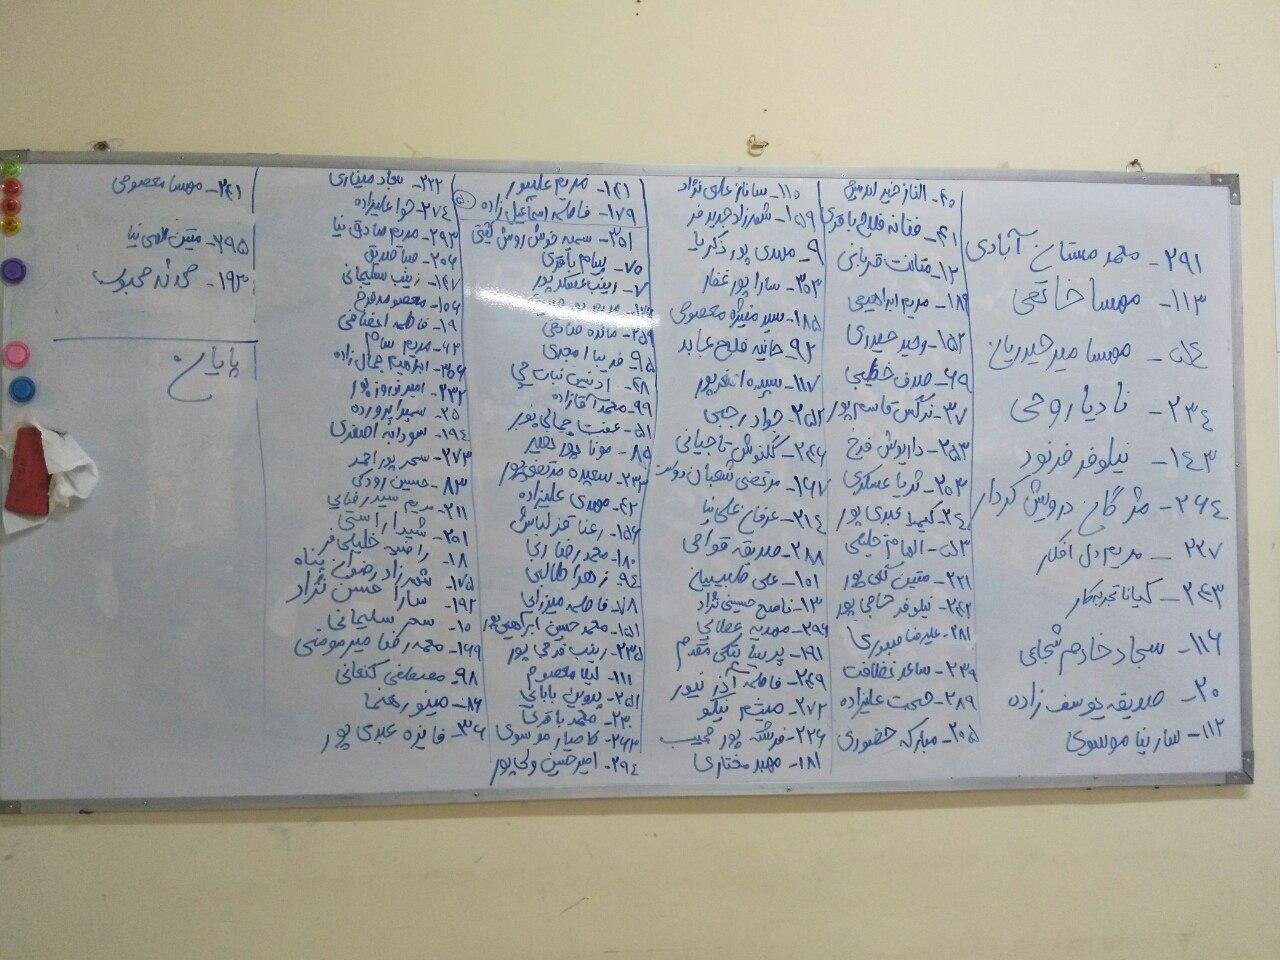 ۲۹۱- محمد مستان آبادی
۱۱۳- مهسا خاتمی
۵۴- مهسا میرحیدریان
۲۳۴- نادیا روحی
۱۴۳- نیلوفر فرنود
۲۶۴- مژگان درویش کردار
۲۲۷- مریم دل افکار
۲۶۳- کیانا تجربه‌کار
۱۱۶- سجاد خادم شجاعی
۲۰- صدیقه یوسف زاده
۱۱۲- سارینا موسوی
۲۰- الناز خیر
۲۱- فتانه فلاح باقری
۱۲- متانت قربانی
۱۸۹- مریم ابراهیمی
۱۵۲- وحید حیدری
۶۹- صدف خطیبی
۳۷- نرگس قاسم پور
۲۵۳- داریوش فرخ
۲۰۳- ثریا عسکری
۲۴- کیمیا عبدی پور
۵۳- الهام حلیمی
۲۲۱- متین گلی پور
۲۴۲- نیلوفر حاجی پور
۲۸۱- علیرضا صبوری
۲۳۹- ساعد نظافت
۲۸۹- حکمت علیزاده
۲۰۵- مبارکه خضوری
۱۱۰- ساناز علی نژاد
۱۵۹- شهرزاد حریر فر
۹- مهدی پور ذکریا
۳۰۳- سارا پور غفار
۱۸۵- سید منیژه معصومی
۹۲- حانیه فلاح عابد
۱۱۷- سپیده اصغرپور
۲۵۲- جواد رجبی
۲۶۶- گلنوش تاجیانی
۱۶۷- مرتضی شعبان دوست
۲۱۴- عرفان علی نیا
۲۸۸- صدیقه قوامی
۱۰۱- علی طبیبیان
۱۳- ناصح حسینی نژاد
۲۹۶- مهدیه عطایی
۱۹۱- پریسا نیکی مقدم
۲۶۹- فاطمه آذر نیور
۲۷۲- میثم نیکو
۲۲۶- فرشته پور حبیب
۱۸۱- مهبد مختاری
۱۲۱- مریم علیپور
۱۷۹- فاطمه اسماعیل زاده
۳۵۱- سمیه خوش روش گیتی
۷۵- پیام باقری
۷- زینب عسکرپور
مریم پور
۲۵۹- مائده صادقی
۹۵- فریبا امجدی
۲۸- ادنیس نبات چی
۹۹- محمد آقازاده
۵۱- عفت جهانی پور
۸۵- مونا پور نصیر
۲۳۳- سعیده مرتضی پور
۶۲- مهدی علیزاده
۱۵۶- رعنا قزلباش
۱۸۰- محمدرضا ربی
۹۴- زهرا طالبی
۷۸- فاطمه میرزایی
۱۵۱- محمد حسین ابراهیم پور
۲۳۵- زینب فرجی پور
۱۱۱- لیلا معصوم
۲۵۱- پروین بابایی
۲۳- محمد باقری
۲۶۳- کامیار موسوی
۲۹۴- امیرحسین ولی پور
۲۲۲- سجاد میناری
۲۷۴- حوا علیزاده
۲۹۳- مریم صادق نیا
۲۰۶- صبا صدیق
۱۴۷- زینب سلیمانی
۱۰۶- معصومه فرخ
۱۹- فاطمه اعضامی
۶۲- مریم سام
۳۵۶- ابراهیم جمال زاده
۲۳۲- امیر نوروزپور
۲۵- سمیرا پرورده
۱۹۴- سودابه اصغری
۲۷۳- سحر پور احمد
۸۳- حسین رودکی
۲۱۱- مریم سیدرضایی
۲۰۱- شیدا راستی
۱۸- راضیه خلیلی فر
۱۷۵- شهرزاد رضوان پناه
۱۹۲- سارا حسن نژاد
۱۰- سحر سلیمانی
۱۶۹- محمدرضا میرمومنی
۹۸- مصطفی کنعانی
۸۶- مینو رهنما
۳۶- فایزه عبدی پور
۲۴۱- مهسا معصومی
۶۹۵- متین الهی نیا
۱۹۳- حمدانه محبوب
پایان